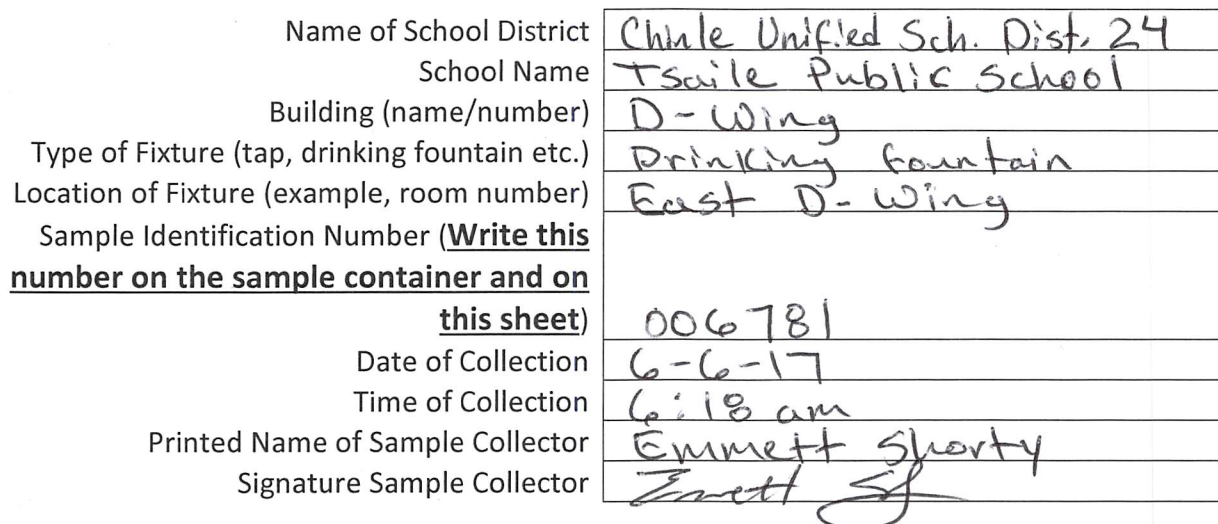 Name of School District Chinle Unified Sch. Dist. 24
School Name Tsaile Public School
Building (name/number) D-Wing
Type of Fixture (tap, drinking fountain etc.) Drinking fountain
Location of Fixture (example, room number) East D-Wing
Sample Identification Number (Write this
number on the sample container and on
this sheet) 006781
Date of Collection 6-6-17
Time of Collection 6:18 am
Printed Name of Sample Collector Emmett Shorty
Signature Sample Collector Emmett